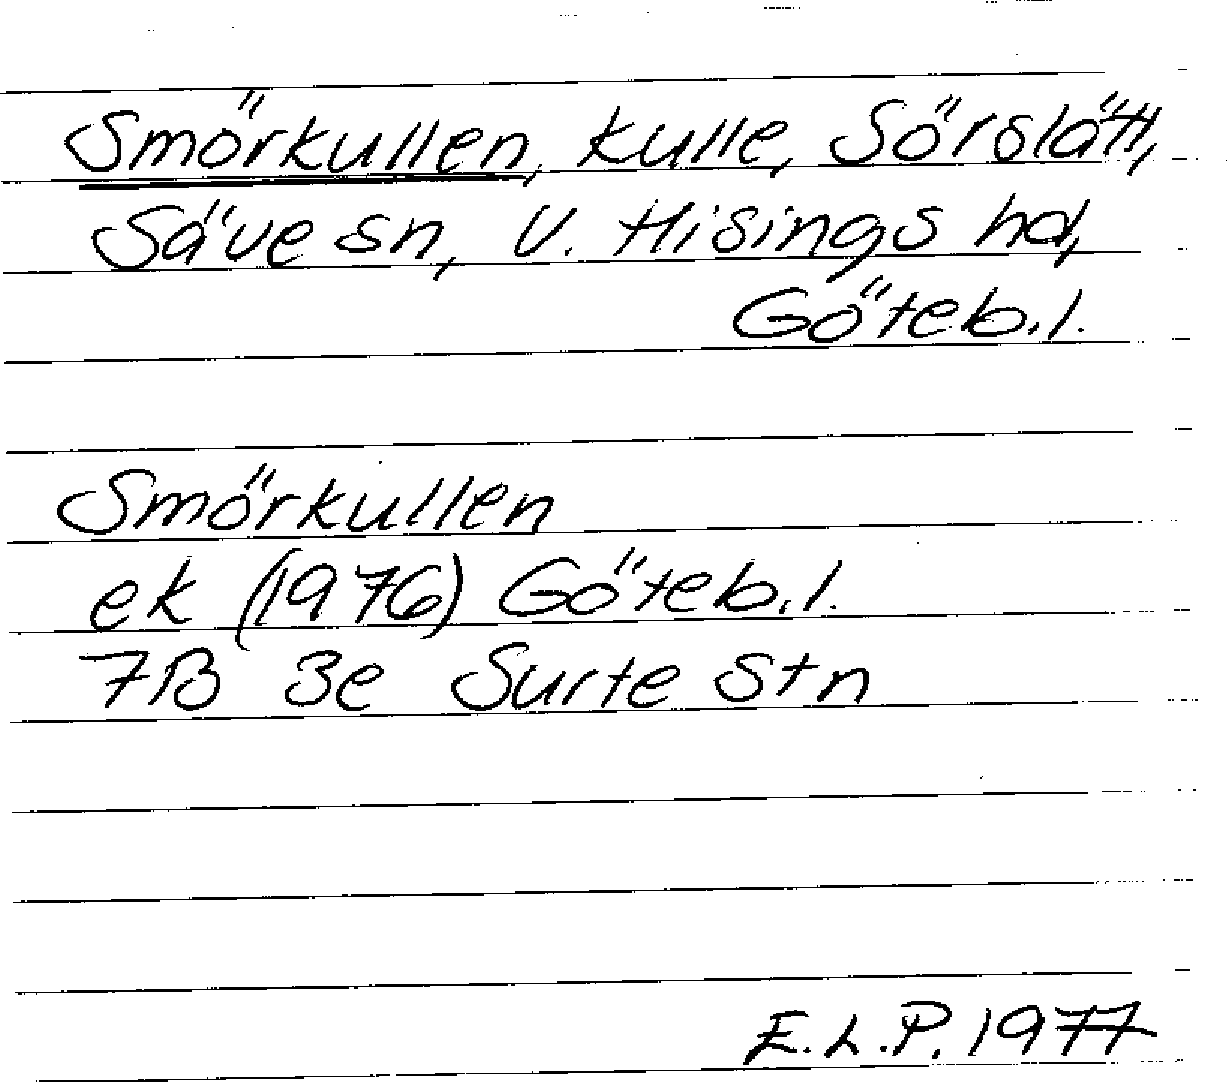 Smörkullen, kulle, Sörslätt,
Säve sn, V. Hisings hd,
Göteb.l.
Smörkullen
ek (1976) Göteb.l.
7B 3e Surte stn
E.L.P. 1977